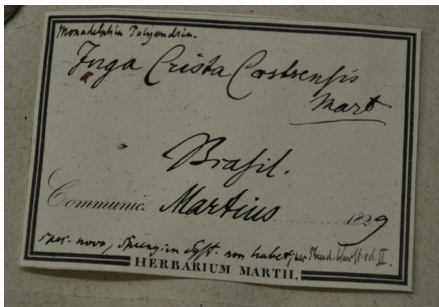 Monadelphia Polyandria.
Inga Crista Castrensis
Mart
Brasil.
Communic. Martius 1829
spec. nova, Spreng. in Syst. non habet
HERBARIUM MARTII.